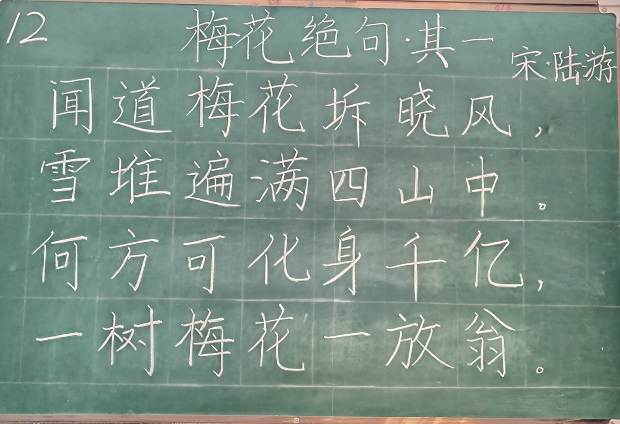 12
梅花绝句·其一
宋·陆游
闻道梅花坼晓风，
雪堆遍满四山中。
何方可化身千亿，
一树梅花一放翁。